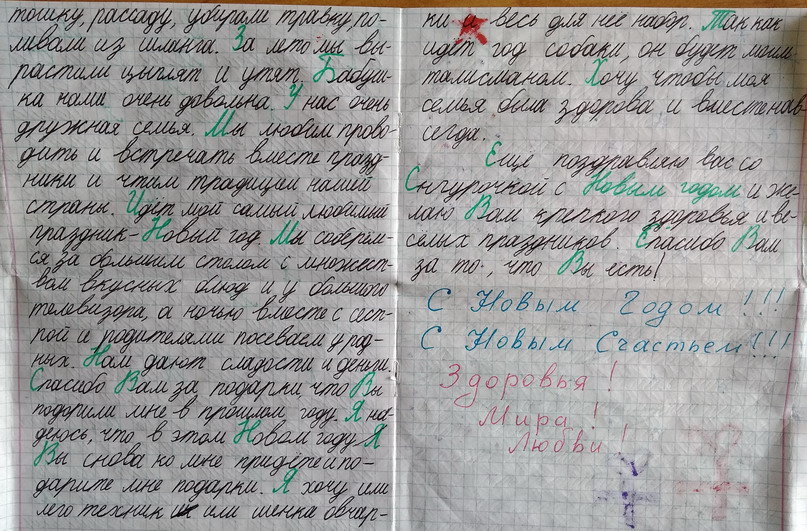 тошку, рассаду, убирали травку, по-
ливали из шланга. За лето мы вы-
растили цыплят и утят. Бабуш-
ка нами очень довольна. У нас очень
дружная семья. Мы любим прово-
дить и встречать вместе празд-
ники и чтим традиции нашей
страны. Идёт мой самый любимый
праздник - Новый год. Мы соберём-
ся за большим столом с множест-
вом вкусных блюд и у большого
телевизора, а ночью вместе с сест-
рой и родителями посеваем у род-
ных. Нам дают сладости и деньги.
Спасибо Вам за подарки, что Вы
подарили мне в прошлом году. Я на-
деюсь, что в этом Новом году Я
Вы снова ко мне придете и по-
дарите мне подарки. Я хочу, или
лего техник или или щенка овчар-
ки и весь для неё набор. Так как
идёт год собаки, он будет моим
талисманом. Хочу чтобы моя
семья была здорова и вместе нав
сегда.
Еще поздравляю вас со
Снгурочкой с Новым годом и же-
лаю Вам крепкого здоровья и ве-
сёлых праздников. Спасибо Вам
за то, что Вы есть!
С Новым Годом!!!
С Новым Счастьем!!!
Здоровья!
Мира!
Любви!